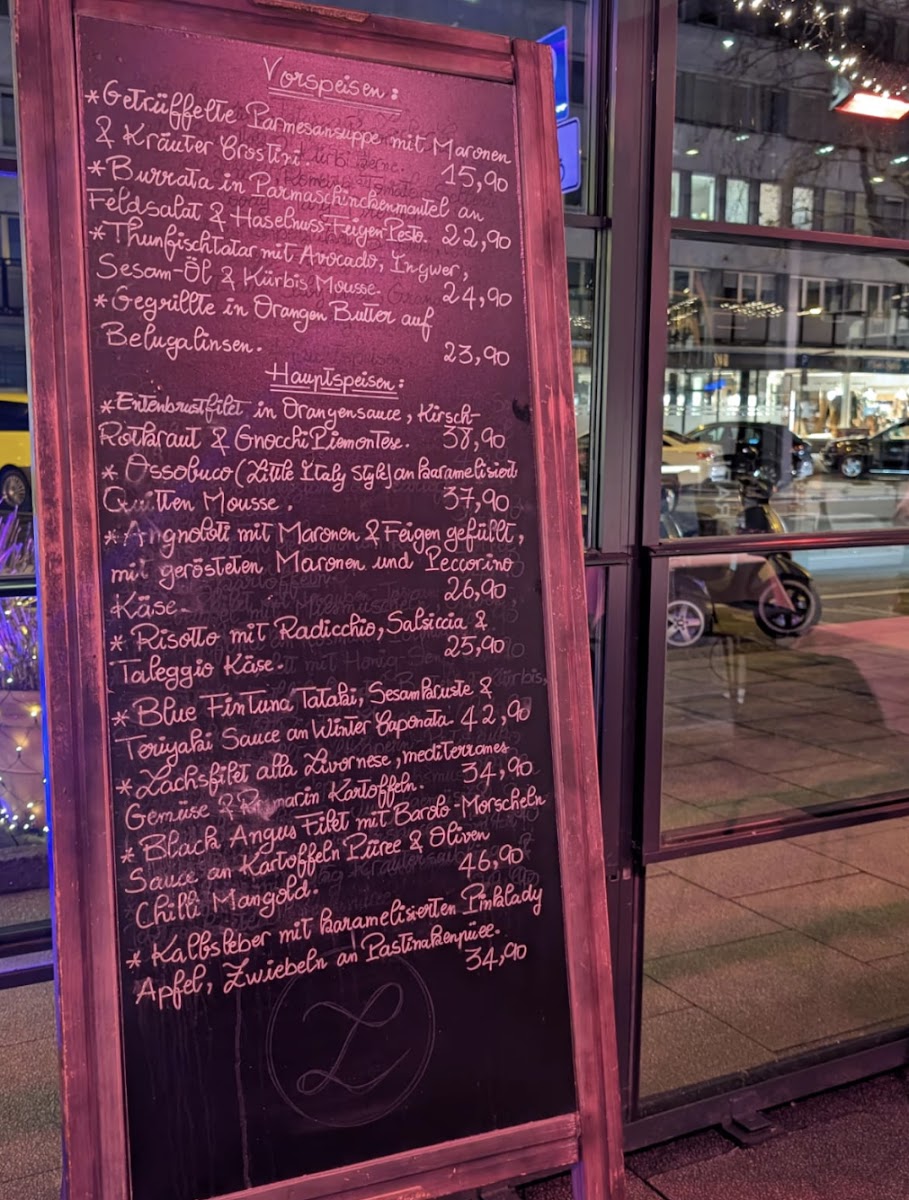 Vorspeisen:
*Getrüffelte Parmesansuppe mit Maronen
& Kräuter Crostini. 15,90
*Burrata in Parmaschinkenmantel an
Feldsalat & Haselnuss-Feigen Pesto. 22,90
*Thunfischtatar mit Avocado, Ingwer,
Sesam-Öl & Kürbis Mousse. 24,90
*Gegrillte in Orangen Butter auf
Belugalinsen. 23,90
Hauptspeisen:
*Entenbrustfilet in Orangensauce, Kirsch-
Rotkraut & Gnocchi Piemontese. 38,90
*Ossobuco (Little Italy Style) an karamelisiert
Quitten Mousse. 37,90
*Angnolotti mit Maronen & Feigen gefüllt,
mit gerösteten Maronen und Peccorino
Käse. 26,90
*Risotto mit Radicchio, Salsiccia &
Taleggio Käse. 25,90
*Blue Fin Tuna Tataki, Sesamkruste &
Teriyaki Sauce an Winter Caponata 42,90
*Lachsfilet alla Livornese, mediterranes
Gemüse & Rosmarin Kartoffeln. 34,90
*Black Angus Filet mit Barolo-Morscheln
Sauce an Kartoffeln Püree & Oliven
Chilli Mangold. 46,90
*Kalbsleber mit karamelisierten Pinklady
Apfel, Zwiebeln an Pastinakenpüee. 34,90
L